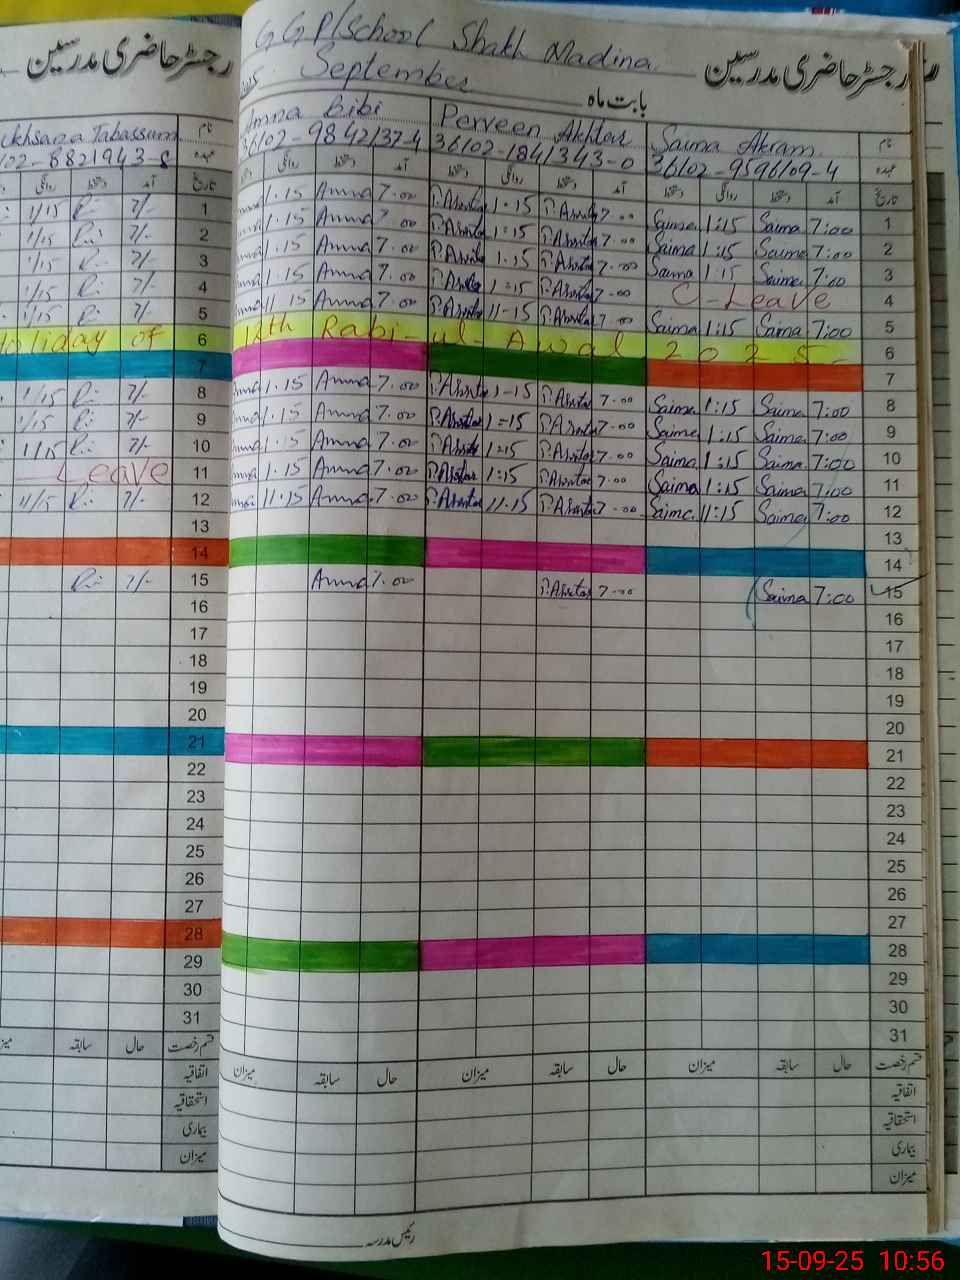 رجسٹر حاضری مدرسین
G G P/School Shakh Madina
رجسٹر حاضری مدرسین
September
بابت ماہ
Tabassum نام
Amna Bibi Perveen Akhtar Saima Akram نام
02-6821943-8 عہدہ
36102-9842137-4 36102-1841343-0 36102-9596109-4 عہدہ
دستخط روانگی دستخط آمد تاریخ
1/15 Ri 7/- 1 1.15 Amna 7.00 P.Akhtar 1:15 P.Akhtar 7-00 Saima 1:15 Saima 7:00 1
1/15 Ri 7/- 2 1.15 Amna 7.00 P.Akhtar 1:15 P.Akhtar 7-00 Saima 1:15 Saima 7:00 2
1/15 Ri 7/- 3 1.15 Amna 7.00 P.Akhtar 1:15 P.Akhtar 7-00 Saima 1:15 Saima 7:00 3
1/15 Ri 7/- 4 1.15 Amna 7.00 P.Akhtar 1:15 P.Akhtar 7-00 C-Leave 4
1/15 Ri 7/- 5 11.15 Amna 7.00 P.Akhtar 11-15 P.Akhtar 7-00 Saima 1:15 Saima 7:00 5
Holiday of 6 12th Rabi-ul-Awal 2025 6
7 7
1/15 Ri 7/- 8 Amna 1.15 Amna 7.00 P.Akhtar 1-15 P.Akhtar 7-00 Saima 1:15 Saima 7:00 8
1/15 Ri 7/- 9 Amna 1.15 Amna 7.00 P.Akhtar 1-15 P.Akhtar 7-00 Saima 1:15 Saima 7:00 9
1/15 Ri 7/- 10 Amna 1.15 Amna 7.00 P.Akhtar 1:15 P.Akhtar 7-00 Saima 1:15 Saima 7:00 10
Leave 11 Amna 1.15 Amna 7.00 P.Akhtar 1:15 P.Akhtar 7-00 Saima 1:15 Saima 7:00 11
11/15 Ri 7/- 12 11.15 Amna 7.00 P.Akhtar 11.15 P.Akhtar 7-00 Saima 11:15 Saima 7:00 12
13 13
14 14
Ri 7/- 15 Amna 7.00 P.Akhtar 7-00 Saima 7:00 15
16 16
17 17
18 18
19 19
20 20
21 21
22 22
23 23
24 24
25 25
26 26
27 27
28 28
29 29
30 30
31 31
سابقہ حال قسم رخصت
میزان سابقہ حال میزان سابقہ حال میزان سابقہ حال قسم رخصت
اتفاقیہ اتفاقیہ
استحقاقیہ استحقاقیہ
بیماری بیماری
میزان میزان
رئیس مدرسہ
15-09-25 10:56